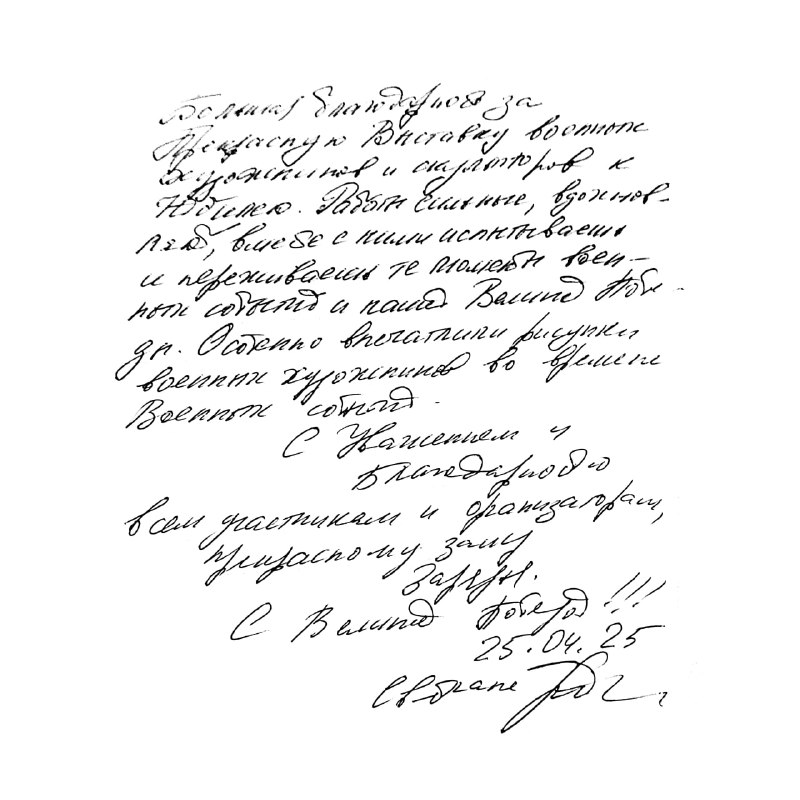 Большая благодарность за
Прекрасную Выставку военных
художников и скульпторов к
Юбилею. Работы сильные, вдохнов-
ляют, вместе с ними испытываешь
и переживаешь те моменты воен-
ных событий и нашей Великой Побе-
ды. Особенно впечатлили рисунки
военных художников во времена
Военных событий.
С Уважением и
Благодарностью
всем участникам и организаторам,
прекрасному залу
С Великой Победой!!!
25.04.25